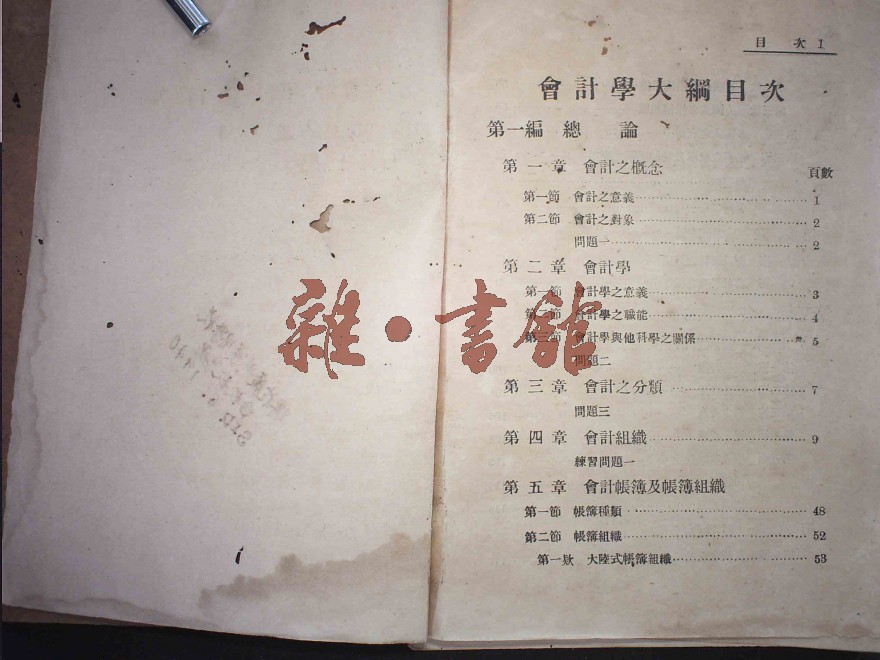 目 次 1
會計學大綱目次
第一編 總 論
第一章 會計之概念
頁數
第一節 會計之意義 1
第二節 會計之對象 2
問題一 2
第二章 會計學
第一節 會計學之意義 3
第二節 會計學之職能 4
第三節 會計學與他科學之關係 5
問題二
第三章 會計之分類 7
問題三
第四章 會計組織 9
練習問題一
第五章 會計帳簿及帳簿組織
第一節 帳簿種類 48
第二節 帳簿組織 52
第一欵 大陸式帳簿組織 53
雜·書館